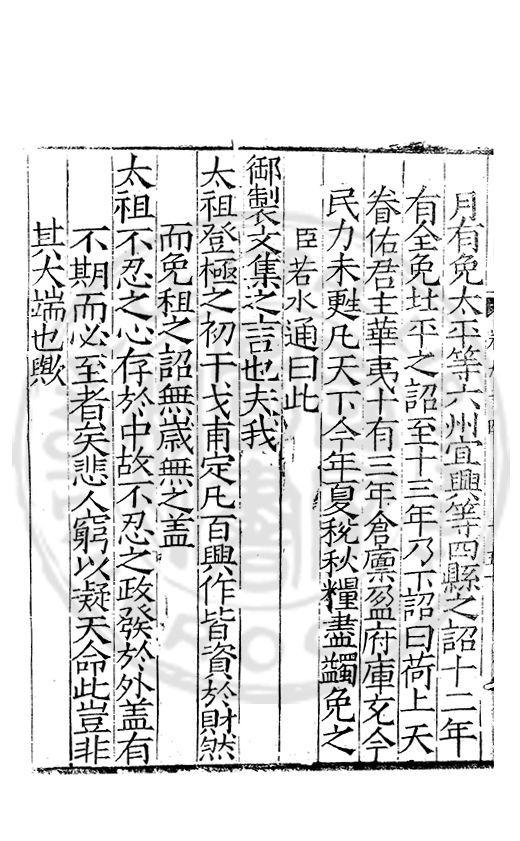 月有免太平等六州宜興等四縣之詔十二年
有全免北平之詔至十三年乃下詔曰荷上天
眷佑君主華夷十有三年倉廩盈府庫充今
民力未甦凡天下今年夏稅秋糧盡蠲免之
臣若水通曰此
御製文集之言也夫我
太祖登極之初干戈甫定凡百興作皆資於財然
而免租之詔無歳無之盖
太祖不忍之心存於中故不忍之政發於外盖有
不期而必至者矣悲人窮以凝天命此豈非
其大端也歟